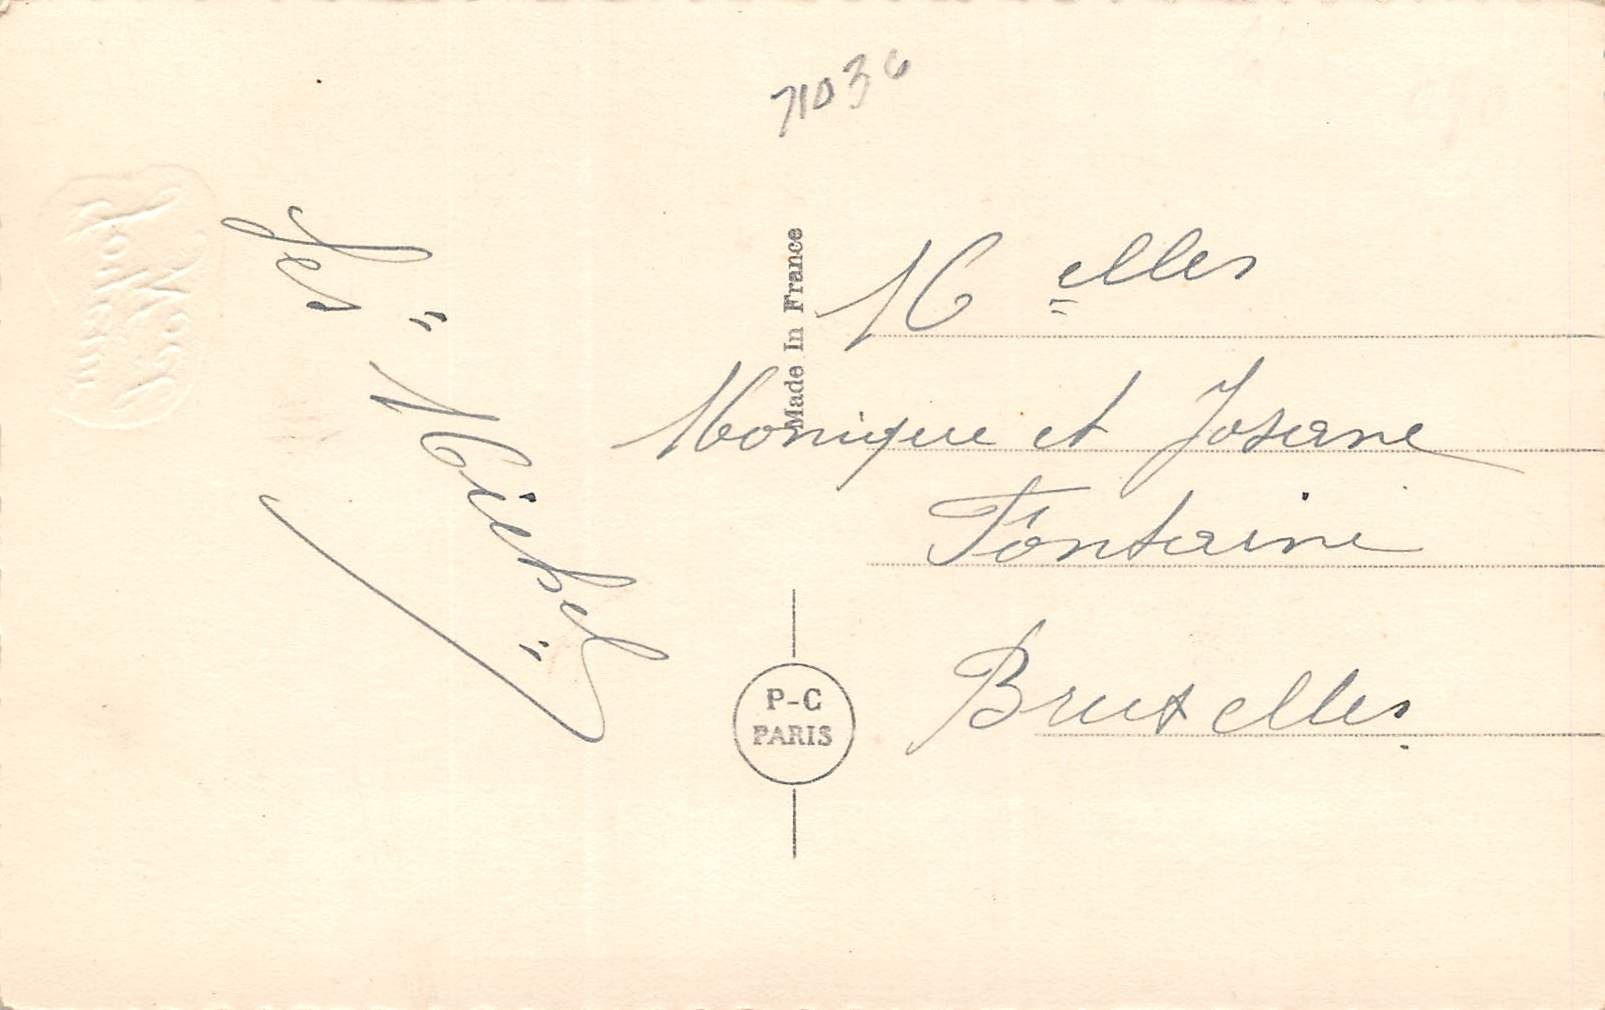 71036
Les "Michel"
Made In France
Melles
Monique et Josane
Fontaine
Bruxelles.
P-C
PARIS